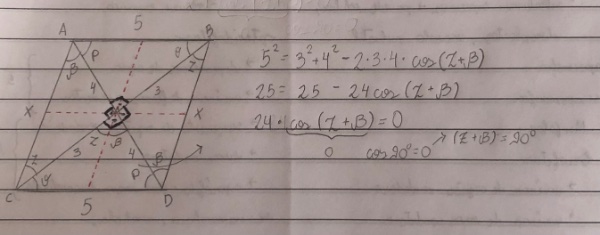 5
A B
β P θ z
4 3
x x
z β
3 4
z θ P β
C D
5
5² = 3² + 4² - 2·3·4·cos(z+β)
25 = 25 - 24cos(z+β)
24·cos(z+β) = 0
0 cos90° = 0 → (z+β) = 90°